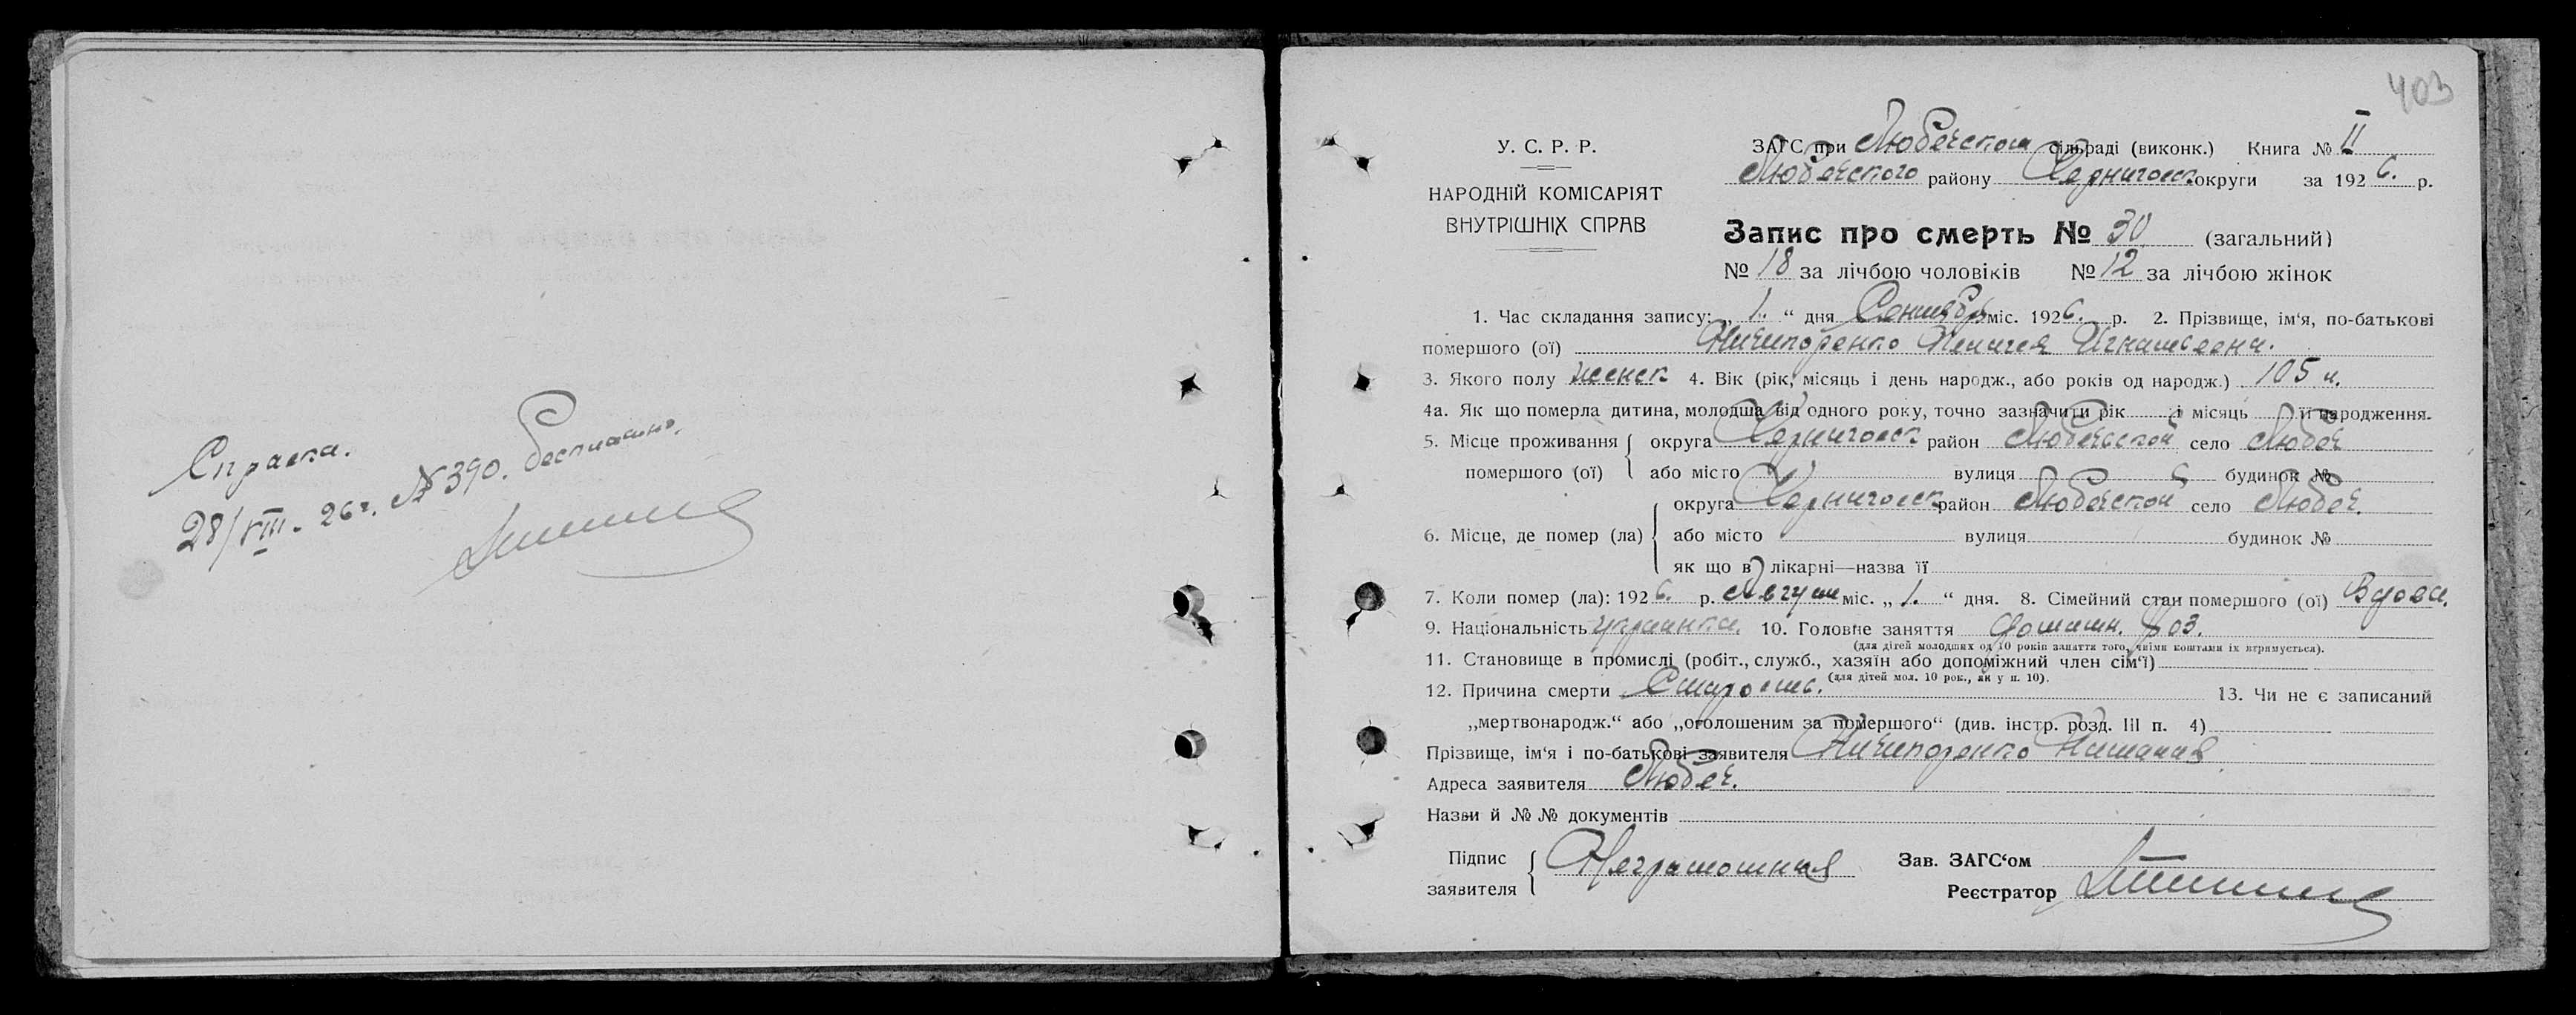 Справка.
28/VIII - 26 г. № 390. бесплатно.
403
У. С. Р. Р.
НАРОДНІЙ КОМІСАРІЯТ
ВНУТРІШНІХ СПРАВ
ЗАГС при Любечском сільраді (виконк.) Книга № II
Любечского району Черниговск округи за 1926. р.
Запис про смерть № 30 (загальний)
№ 18 за лічбою чоловіків № 12 за лічбою жінок
1. Час складання запису: „ 1. “ дня Сентябр міс. 1926. р. 2. Прізвище, ім‘я, по-батькові
помершого (ої) Ничипоренко Игнатьевна.
3. Якого полу женск 4. Вік (рік, місяць і день народж., або років од народж.) 105 л.
4а. Як що померла дитина, молодша від одного року, точно зазначити рік і місяць її народження.
5. Місце проживання округа Черниговск район Любечской село Любеч
помершого (ої) або місто вулиця будинок №
округа Черниговск район Любечской село Любеч.
6. Місце, де помер (ла) або місто вулиця будинок №
як що в лікарні—назва її
7. Коли помер (ла): 1926. р. Август міс. „ 1. “ дня. 8. Сімейний стан помершого (ої) Вдова.
9. Національність украинка. 10. Головне заняття домашн. хоз.
(для дітей молодших од 10 років заняття того, чиїми коштами їх втримується).
11. Становище в промислі (робіт., служб., хазяїн або допоміжний член сім‘ї)
(для дітей мол. 10 рок., як у п. 10).
12. Причина смерти Старость. 13. Чи не є записаний
„мертвонародж.“ або „оголошеним за помершого“ (див. інстр. розд. III п. 4)
Прізвище, ім‘я і по-батькові заявителя Ничипоренко Наталия
Адреса заявителя Любеч.
Назви й № № документів
Підпис
заявителя Неграмотная
Зав. ЗАГС‘ом
Реєстратор